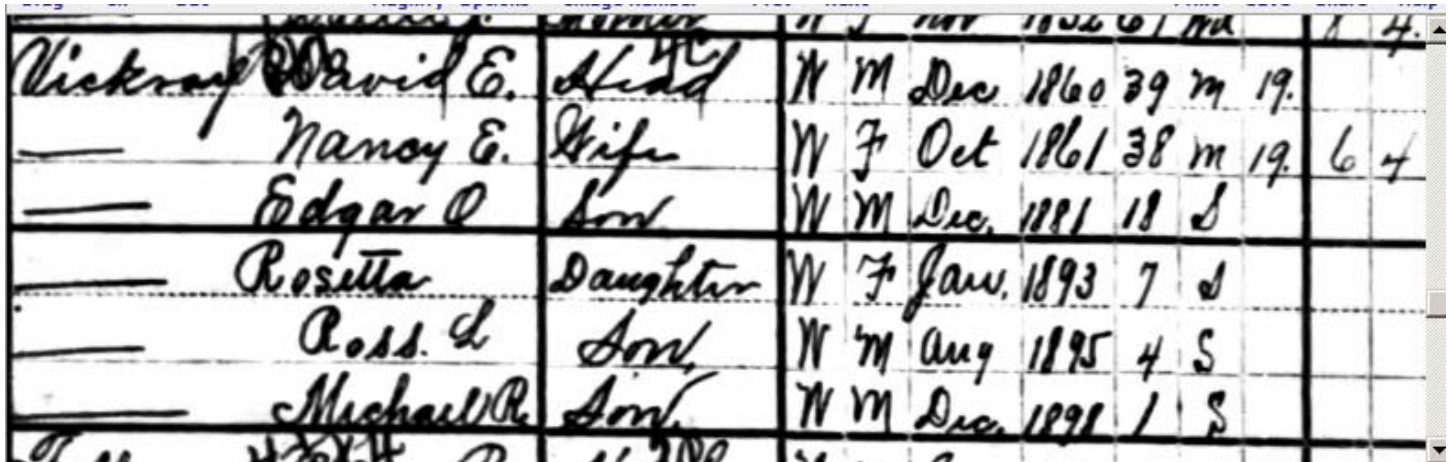 Vickroy David E. Head W M Dec 1860 39 M 19.
— Nancy E. Wife W F Oct 1861 38 M 19. 6 4
— Edgar O Son W M Dec. 1881 18 S
— Rosetta Daughter W F Jan. 1893 7 S
— Ross. L Son, W M Aug 1895 4 S
— Michael R. Son, W M Dec. 1898 1 S